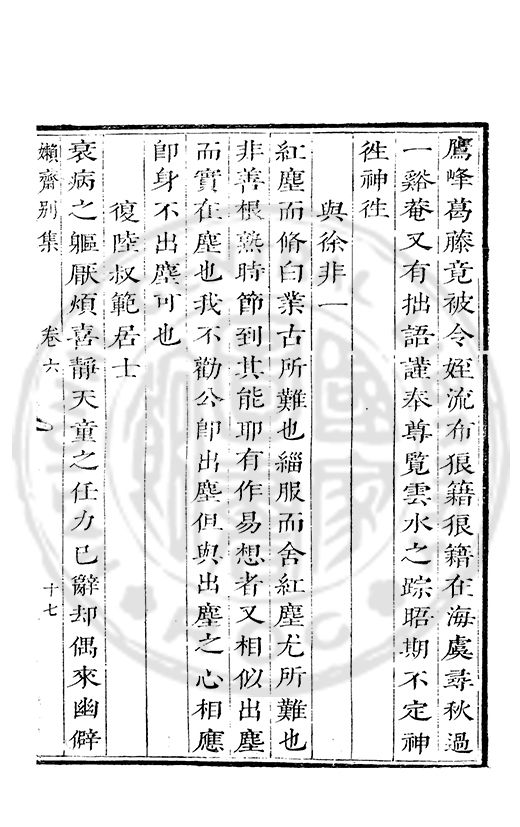 鷹峰葛藤竟被令姪流布狼籍狼籍在海虞尋秋過
一谿菴又有拙語謹奉尊覽雲水之踪晤期不定神
徃神徃
與徐非一
紅塵而脩白業古所難也緇服而舍紅塵尤所難也
非善根熟時節到其能耶有作易想者又相似出塵
而實在塵也我不勸公卽出塵但與出塵之心相應
卽身不出塵可也
復陸叔範居士
衰病之軀厭煩喜靜天童之任力已辭却偶來幽僻
嬾齋别集 卷六 十七